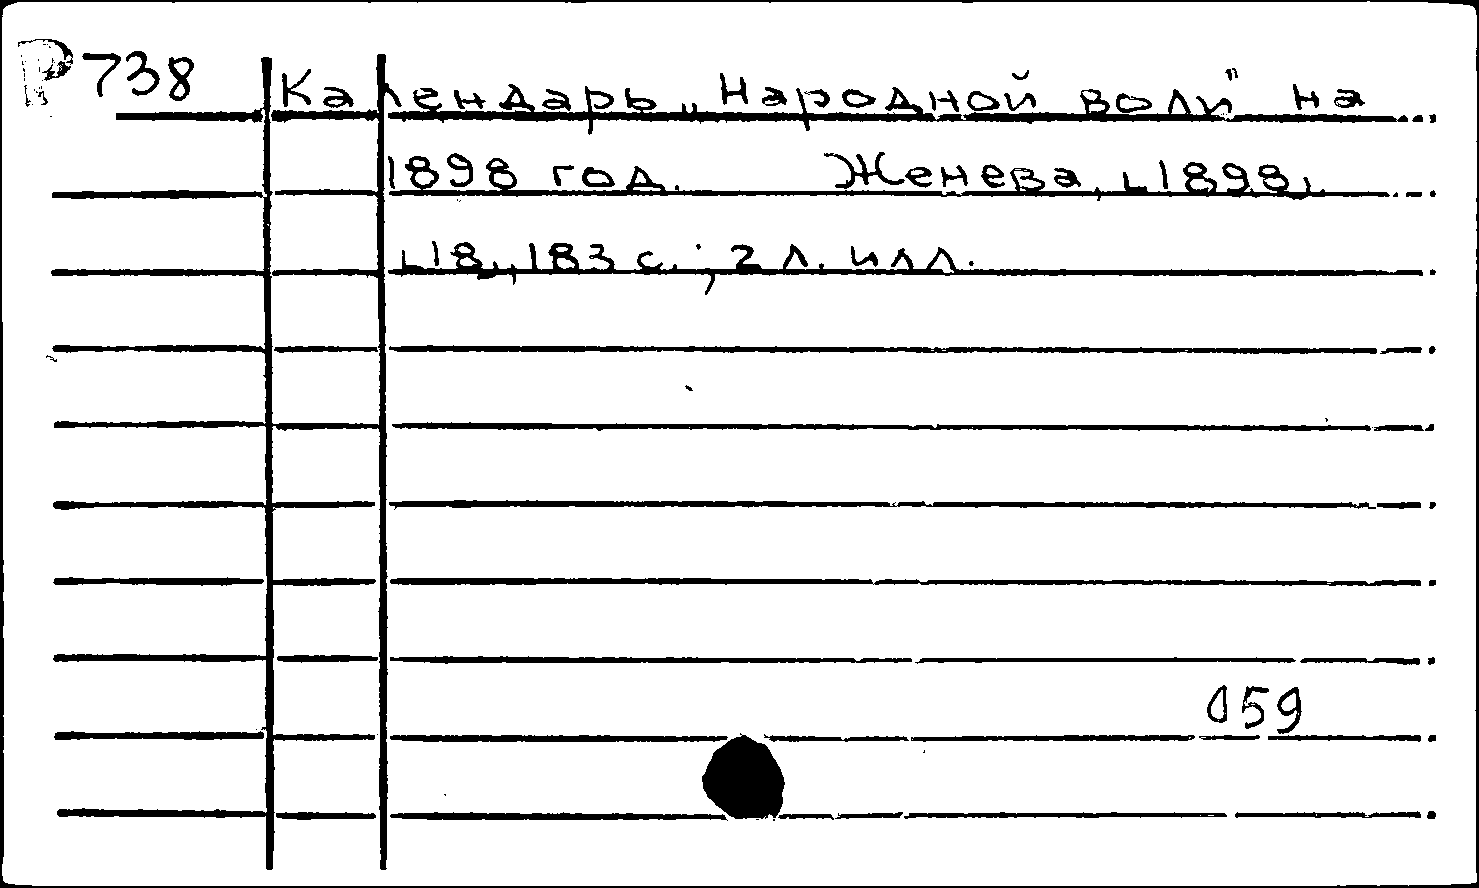 P 738
Календарь „Народной воли" на
1898 год. Женева, [1898]
[18], 183 с.; 2 л. илл.
059